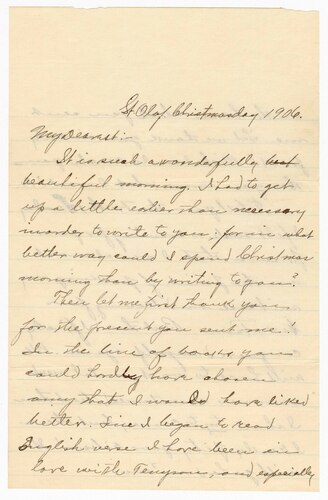 St Olaf Christmasday 1906.
My Dearest:-
It is such a wonderfully
beautiful morning. I had to get
up a little earlier than necessary
in order to write to you: for in what
better way could I spend Christmas
morning than by writing to you?
Then let me first thank you
for the present you sent me!
In the line of books you
could hardly have chosen
any that I would have liked
better. Since I began to read
English verse I have been in
love with Tennyson, and especially